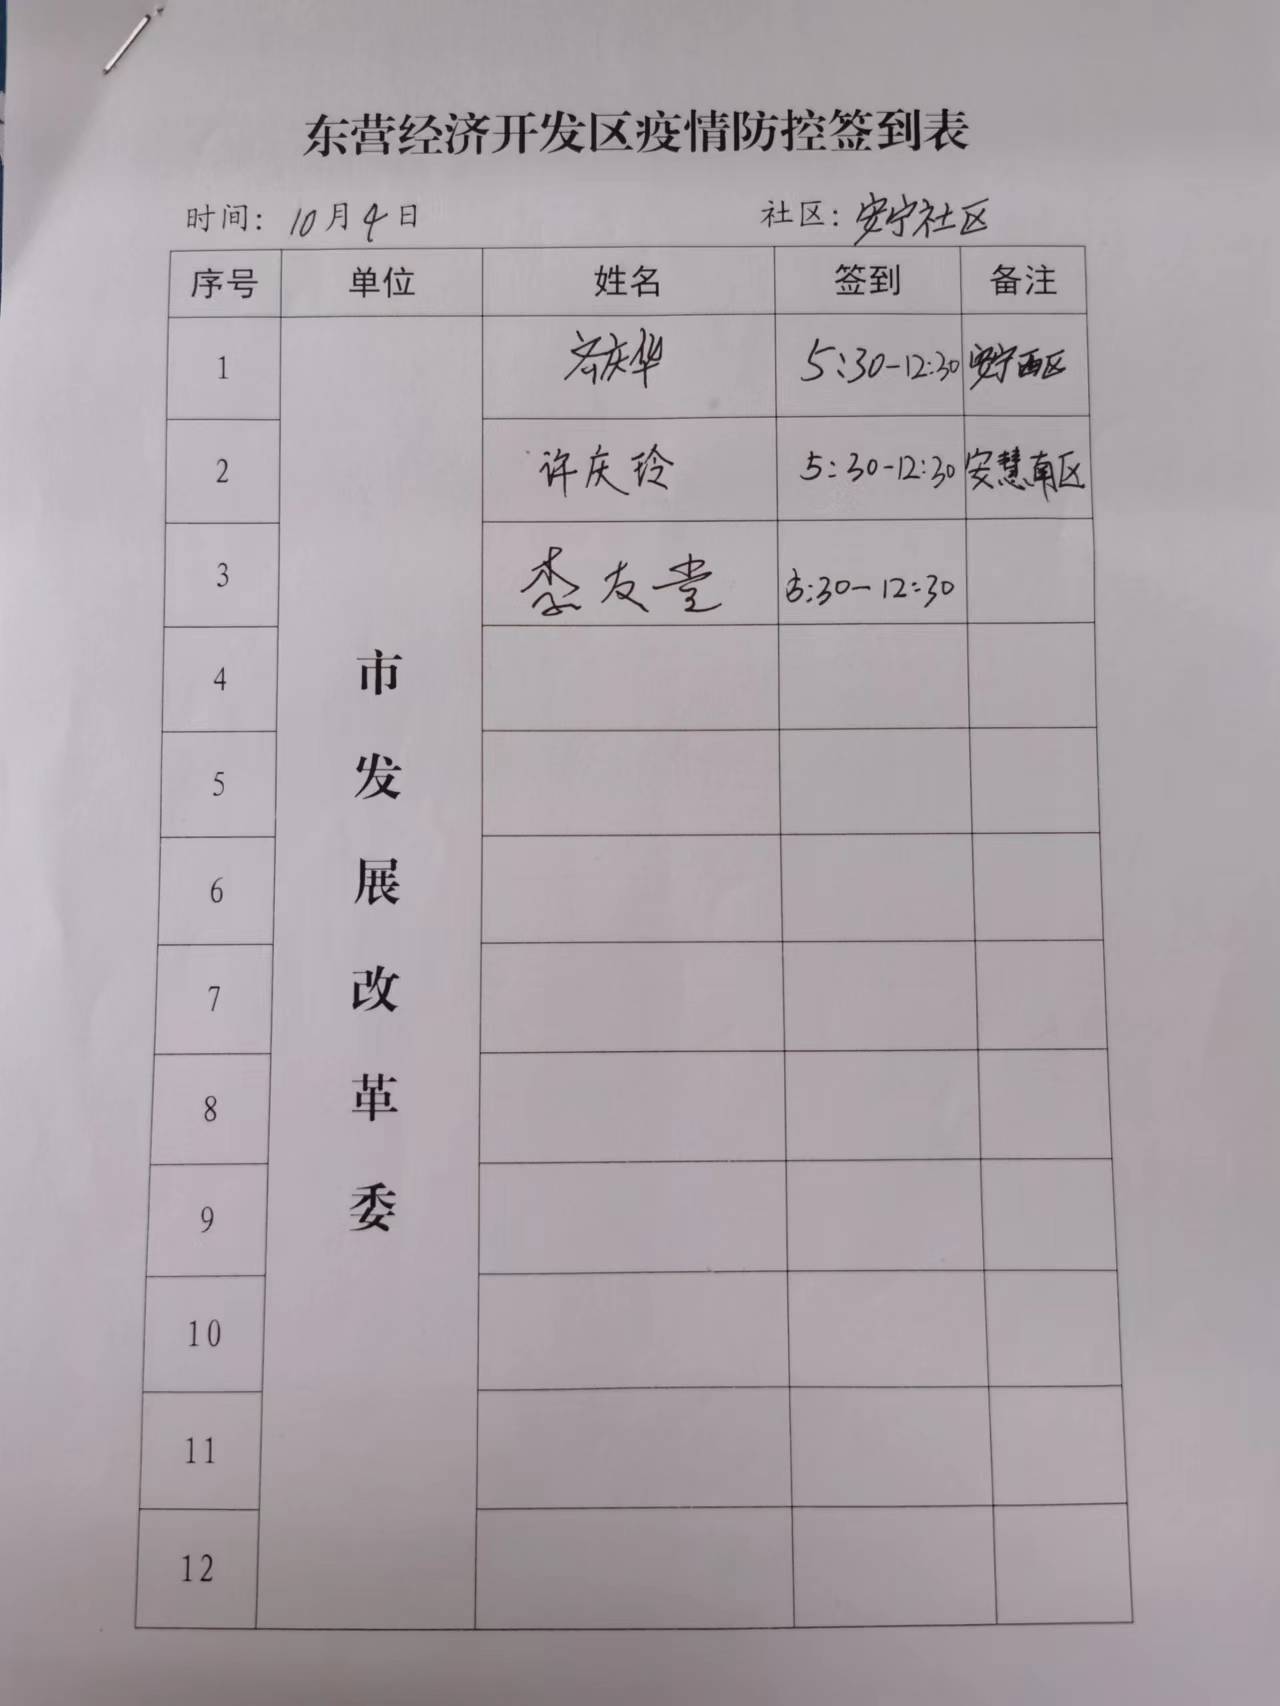 东营经济开发区疫情防控签到表
时间: 10月4日 社区: 安宁社区
序号 单位 姓名 签到 备注
市发展改革委
1 齐庆华 5:30-12:30 安宁西区
2 许庆玲 5:30-12:30 安慧南区
3 李友堂 5:30-12:30
4
5
6
7
8
9
10
11
12